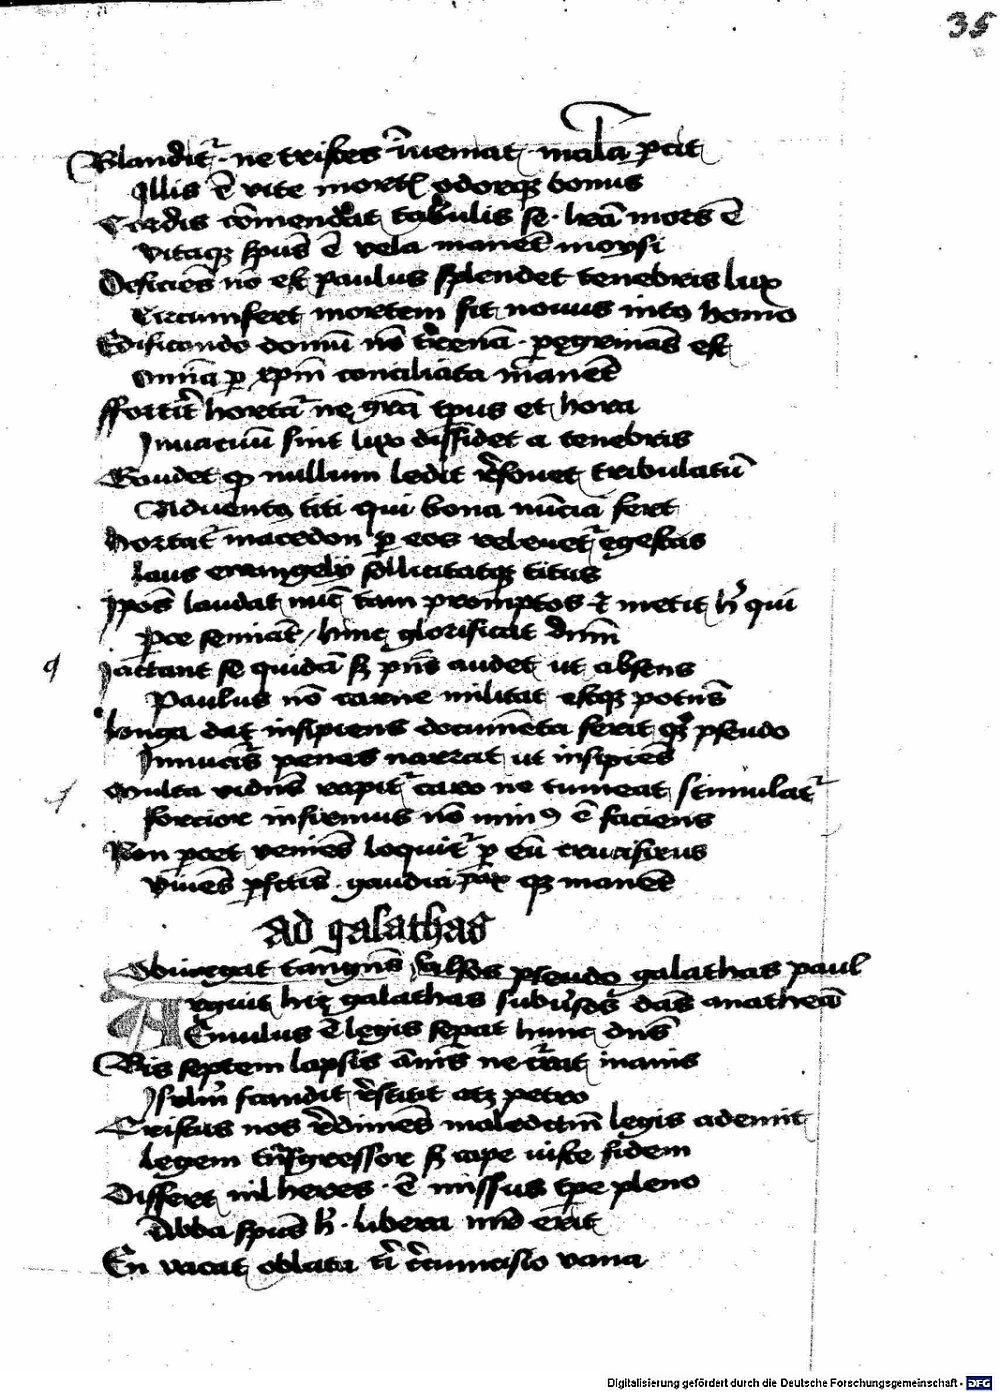 35
Blandit᷑ · ne tristes īveniat · mala p̄cit
Illis ē vite mortis odorqꝫ bonus
Cordis cōmendat tabulis se · lr̄a mors ē
vitaqꝫ sp̄us ē vela manēt moysi
Deficiēs nō est paulus splendet tenebris lux
Circumfert mortem fit novus intꝰ homo
Edificando domū nō t̄renā · peg̱rinās est
Om̄ia ꝑ xp̄m conciliata manēt
ffortit̄ hortat᷑ ne gr̄a tp̄us et hora
In vacuū sint lux diffidet a tenebris
Gaudet ꝙ nullum ledit r̄fovet tribulatū
Adventꝰ titi qui bona nūcia fert
Hortat᷑ macedon ꝑ eos relevet᷑ egestas
Laus ewangelii sollicitatqꝫ titus
Ip̄os laudat nūc tam promptos ⁊ metit hͦ qui
ꝑce seminat / hinc glorificat dn̄m
q Iactant se quidā sꝫ p̄ns audet ut absens
Paulus nō carne militat estqꝫ potēs
Longa dat insipiens documēta ferit qꝫ pseudo
penas narrat ut insipiēs
Multa vidēs rapit᷑ caro ne tumeat stimulat᷑
fortior infirmus nō minꝰ ē faciens
Non ꝑcet veniēs loquit᷑ ꝑ eū crucifixus
Vivēs pfctis · gaudia pax qꝫ manēt
Ad galathas
galathas paul
Arguit hic galathas dās anathema
Emulus ē legis sepat hunc dn̄s
Bis septem lapsis ānis ne c᷑rat inanis
scandit r̄stitit atqꝫ petro
Cristus nos r̄dimēs maledctm̄ legis ademit
Legem tn̄sgressor sꝫ cape iuste fidem
Differt nil heres · ē missus tp̄e pleno
Abba sp̄us hͦ · libera erit
En vacat oblata t̄i c̄cumcisio vana
Digitalisierung gefördert durch die Deutsche Forschungsgemeinschaft - DFG